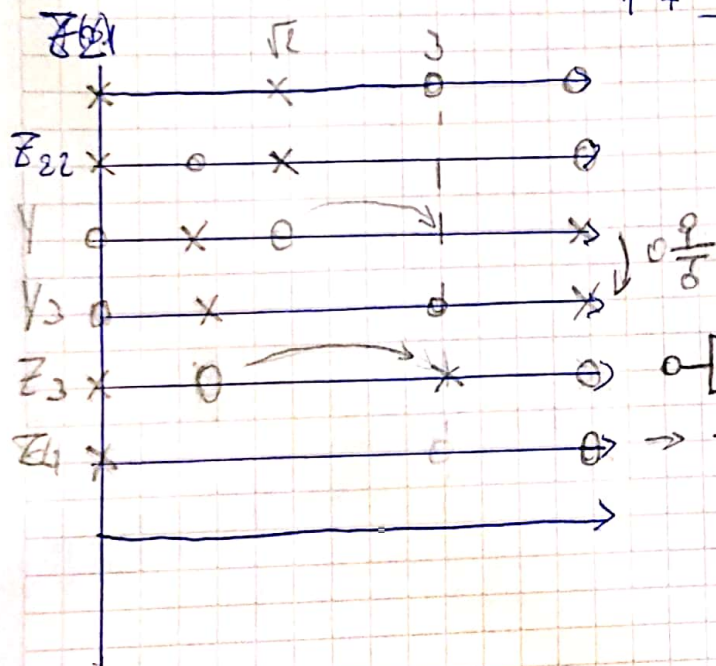 √2 3
Z22
Y
Y3
Z3
Z4